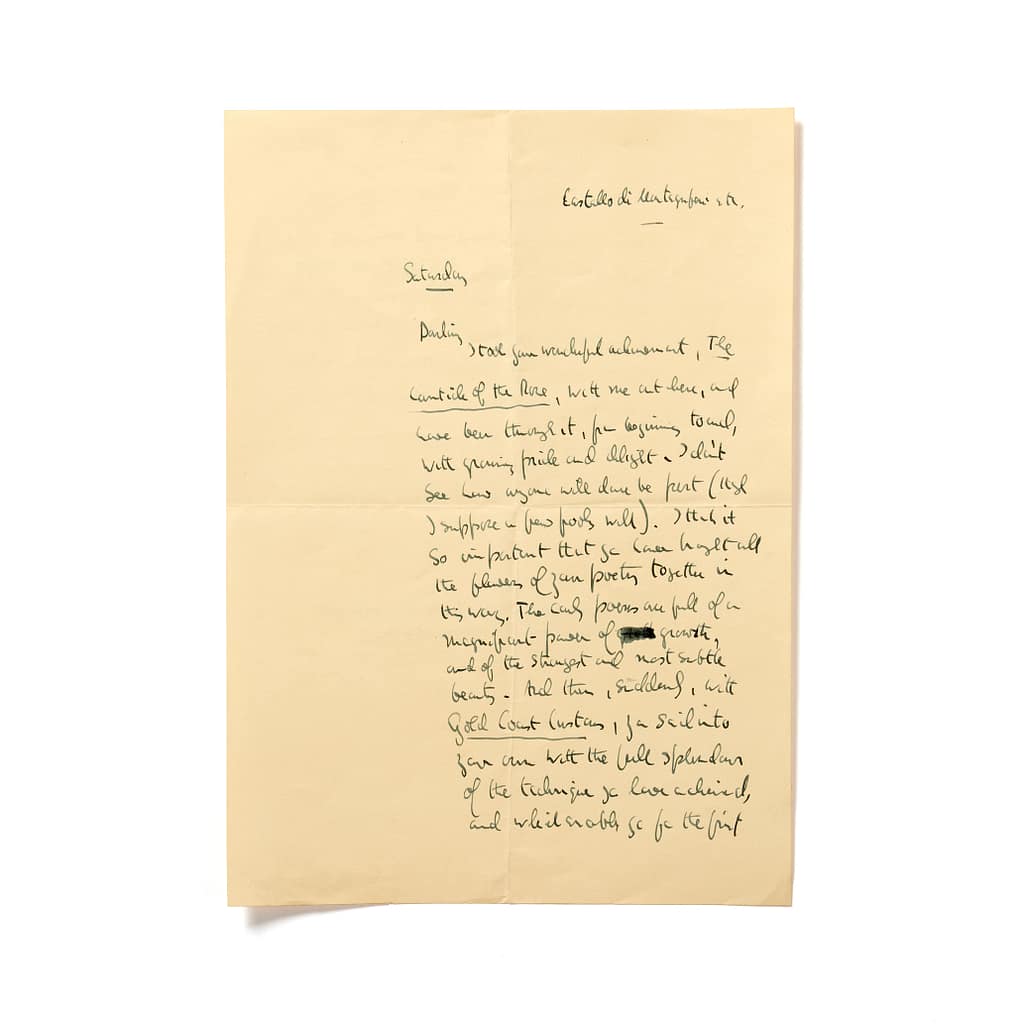 Castello di Montegufoni etc.
Saturday
Darling
I took your wonderful achievement, The
Canticle of the Rose, with me out here, and
have been through it, from beginning to end,
with growing pride and delight. I don't
see how anyone will dare be pert (though
I suppose a few fools will). I think it
so important that you have brought all
the flowers of your poetry together in
this way. The early poems are full of a
magnificent power of growth,
and of the strangest and most subtle
beauty. And then, suddenly, with
Gold Coast Customs, you sail into
your own with the full splendour
of the technique you have achieved,
and which enables you for the first